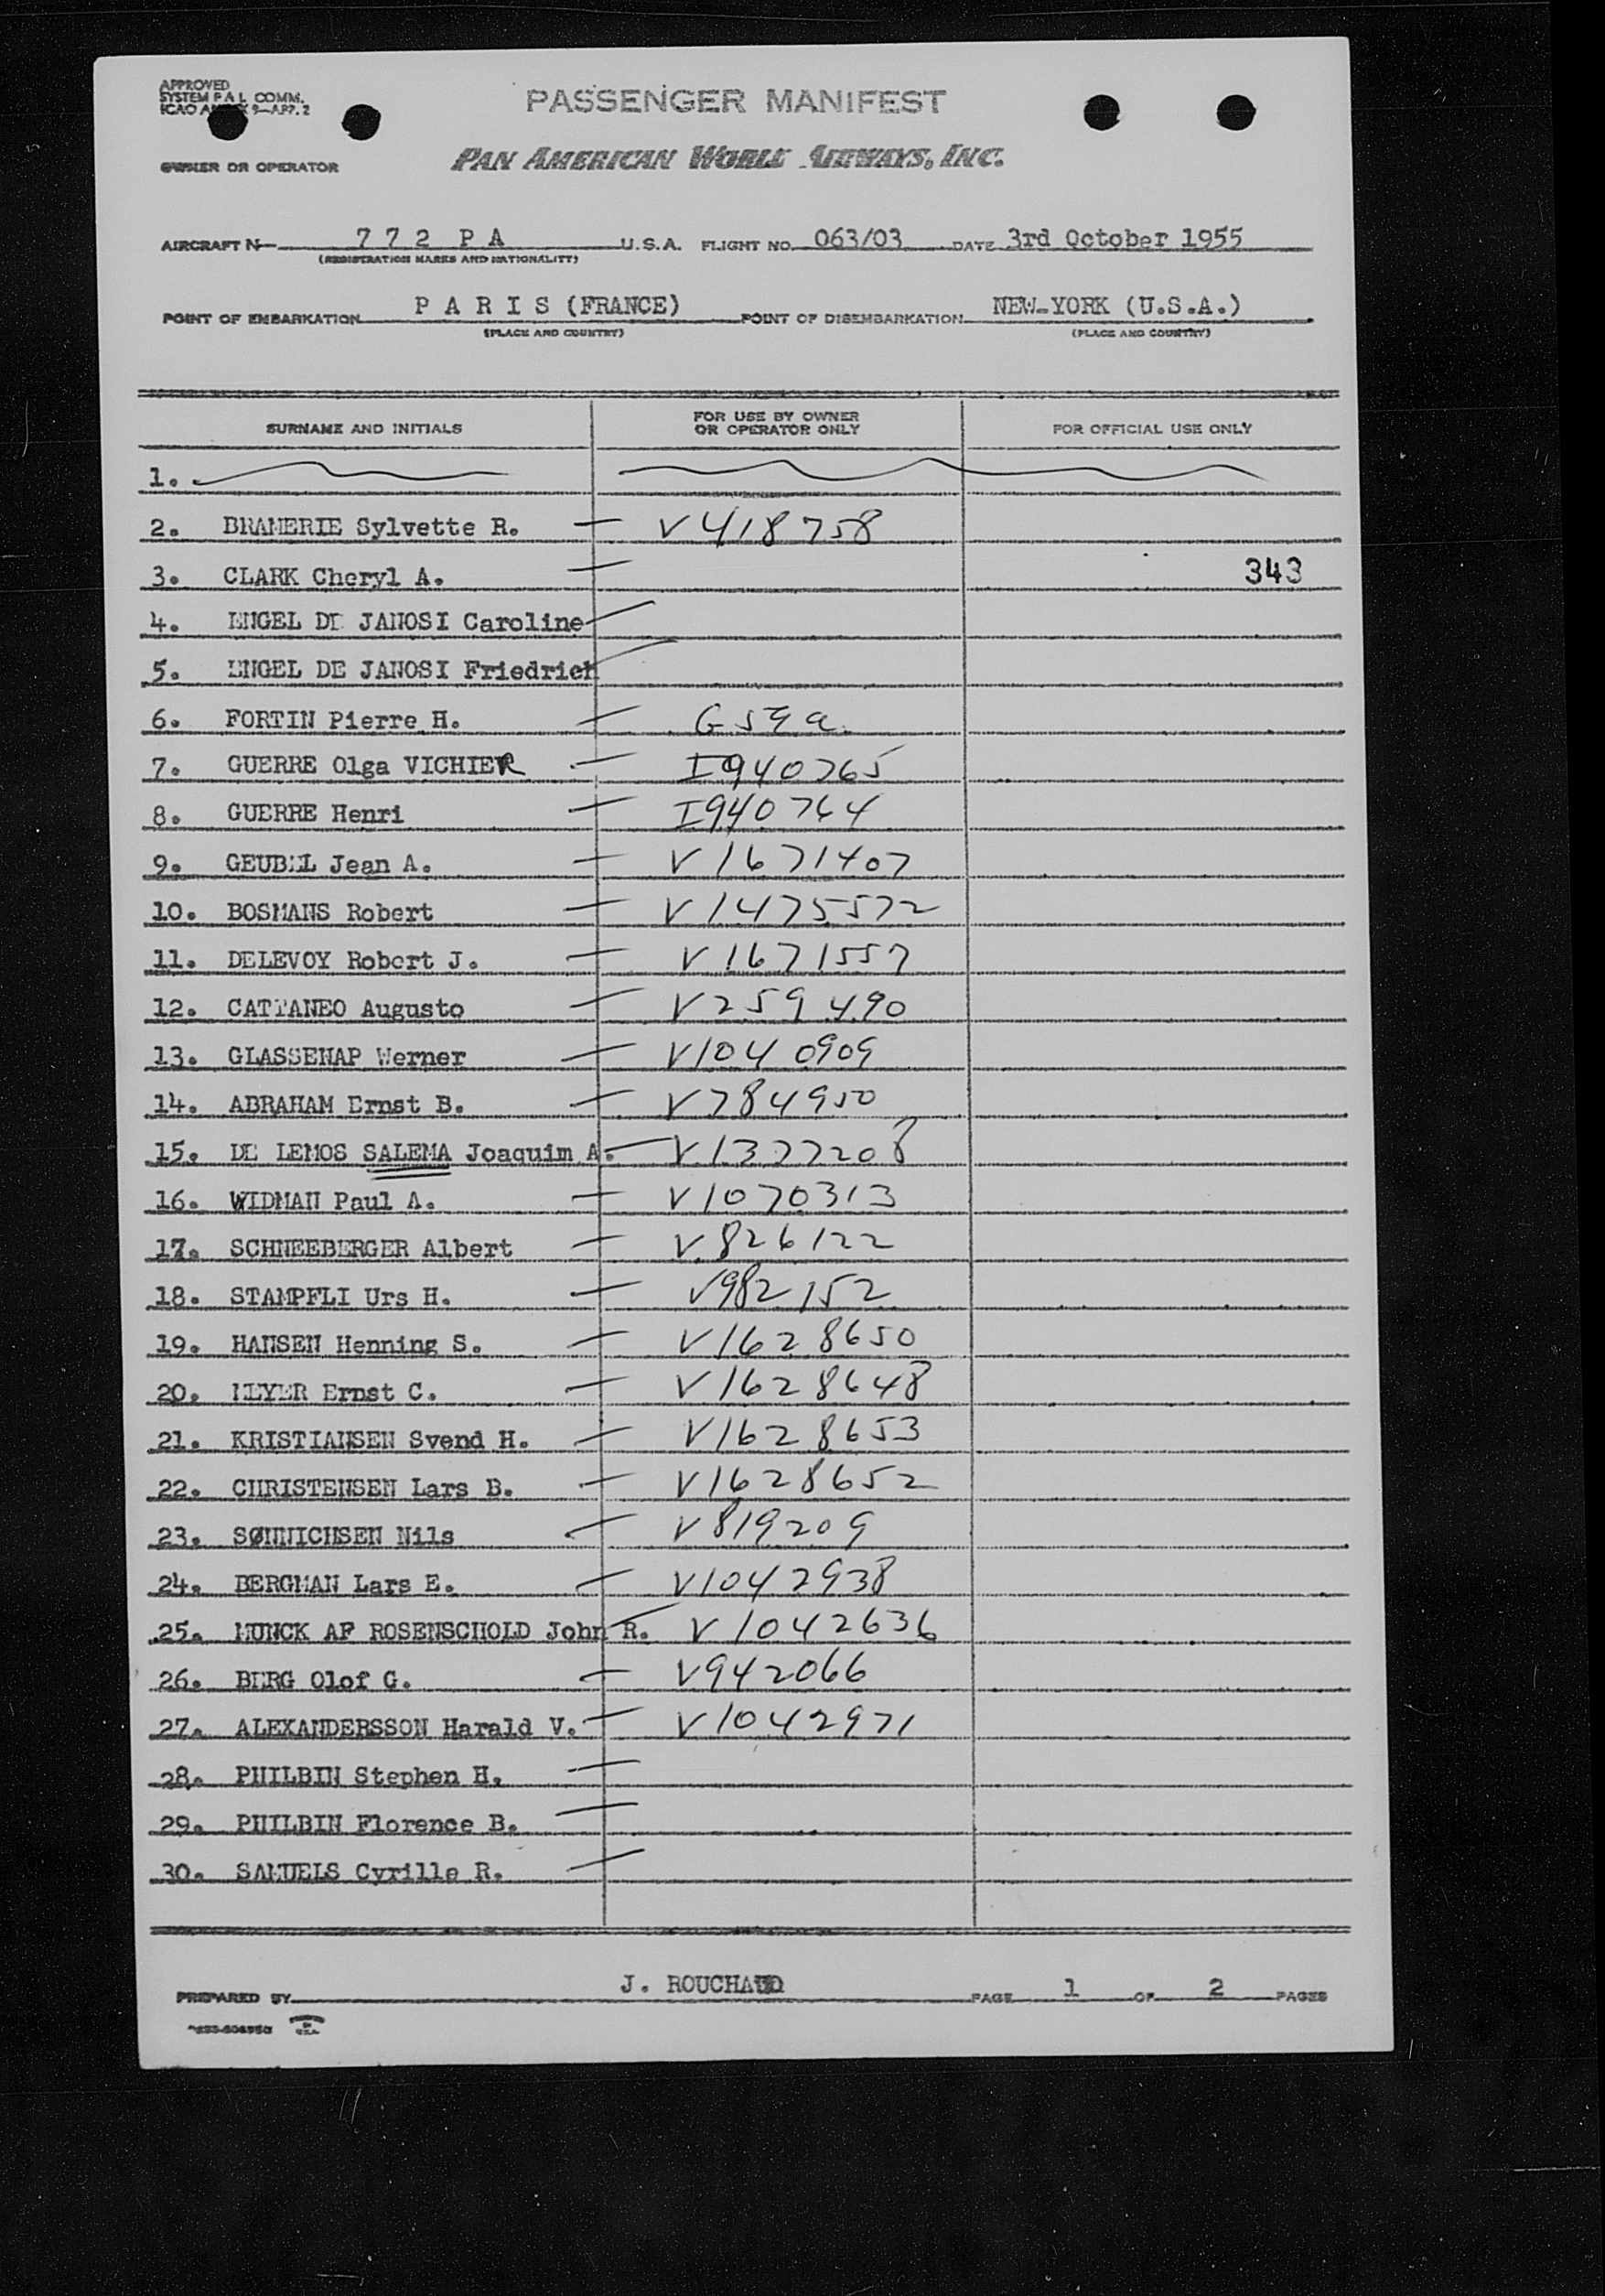 APPROVED
SYSTEM P A L COMM.
ICAO 9—APP. 2
PASSENGER MANIFEST
OWNER OR OPERATOR
PAN AMERICAN WORLD AIRWAYS, INC.
AIRCRAFT N— 7 7 2 P A U.S.A. FLIGHT NO. 063/03 DATE 3rd October 1955
(REGISTRATION MARKS AND NATIONALITY)
POINT OF EMBARKATION P A R I S (FRANCE) POINT OF DISEMBARKATION NEW-YORK (U.S.A.)
(PLACE AND COUNTRY) (PLACE AND COUNTRY)
SURNAME AND INITIALS FOR USE BY OWNER OR OPERATOR ONLY FOR OFFICIAL USE ONLY
1.
2. BRAMERIE Sylvette R. — V418758
3. CLARK Cheryl A. — 343
4. ENGEL DE JANOSI Caroline
5. ENGEL DE JANOSI Friedrich
6. FORTIN Pierre H. —
7. GUERRE Olga VICHIER — I940765
8. GUERRE Henri — I940764
9. GEUBEL Jean A. — V1671407
10. BOSMANS Robert — V1475572
11. DELEVOY Robert J. — V1671557
12. CATTANEO Augusto — V259490
13. GLASSENAP Werner — V1040909
14. ABRAHAM Ernst B. — V784950
15. DE LEMOS SALEMA Joaquim A. — V1377208
16. WIDMAN Paul A. — V1070313
17. SCHNEEBERGER Albert — V826122
18. STAMPFLI Urs H. — V982152
19. HANSEN Henning S. — V1628650
20. MEYER Ernst C. — V1628648
21. KRISTIANSEN Svend H. — V1628653
22. CHRISTENSEN Lars B. — V1628652
23. SØNNICHSEN Nils — V819209
24. BERGMAN Lars E. — V1042938
25. MUNCK AF ROSENSCHOLD John R. V1042636
26. BERG Olof G. — V942066
27. ALEXANDERSSON Harald V. — V1042971
28. PHILBIN Stephen H. —
29. PHILBIN Florence B. —
30. SAMUELS Cyrille R. —
PREPARED BY J. ROUCHAUD PAGE 1 OF 2 PAGES